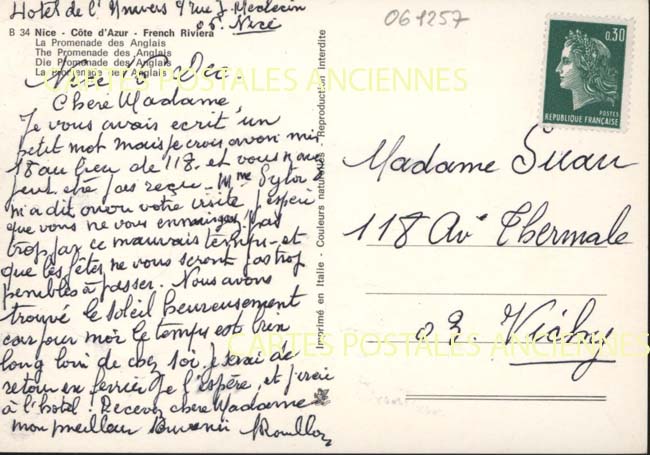 Hotel de l'Univers 9 rue J. Medecin
06 Nice
B 34 Nice - Côte d'Azur - French Riviera
La Promenade des Anglais
The Promenade des Anglais
Die Promenade des Anglais
La Promenade des Anglais
Nice Dec.
Chere Madame,
Je vous avais ecrit un
petit mot mais je crois avoir mis
18 au lieu de 118. et vous n'avez
peut etre pas reçu - Mme
m'a dit votre visite j'espere
que vous ne vous ennuyez pas
trop par ce mauvais temps - et
que les fêtes ne vous seront pas trop
penibles à passer. Nous avons
trouvé le soleil heureusement
car pour moi le temps est bien
long loin de chez soi je serai de
retour en fevrier je l'espère, et j'irai
à l'hotel. Recevez chere Madame
mon meilleur Souvenir
Imprimé en Italie - Couleurs naturelles - Reproduction interdite
061257
0,30
POSTES
REPUBLIQUE FRANÇAISE
Madame Suau
118 Av. Thermale
03 Vichy
CARTES POSTALES ANCIENNES
CARTES POSTALES ANCIENNES